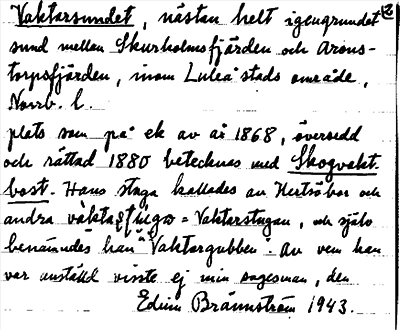 Vaktarsundet, nästan helt igengrundet
sund mellan Skurholmsfjärden och Arons-
torpsfjärden, inom Luleå stads område,
Norrb. l.
plats som på ek av år 1868, översedd
och rättad 1880 betecknas med Skogvakt.
bost. Hans stuga kallades av Hertsöbor och
andra = Vaktarstugan, och själv
benämndes han "Vaktargubben". Av vem han
var anställd visste ej min sagesman, den
Edvin Brännström 1943.